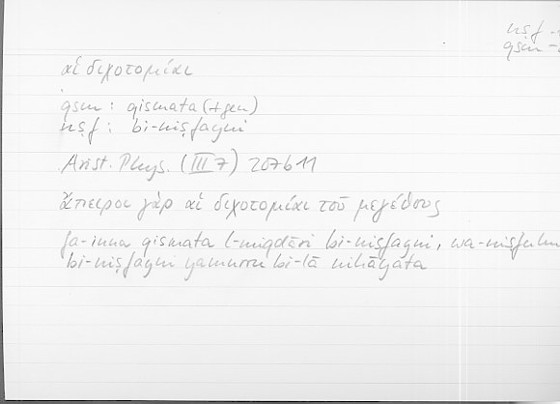 nṣf
qsm
αἱ διχοτομίαι
qsm : qismata (+gen)
nṣf : bi-niṣfayni
Arist. Phys. (III 7) 207b11
ἄπειροι γὰρ αἱ διχοτομίαι τοῦ μεγέθους
fa-inna qismata l-miqdāri bi-niṣfayni, wa-niṣfuhu
bi-niṣfayni yamurru bi-lā nihāyata